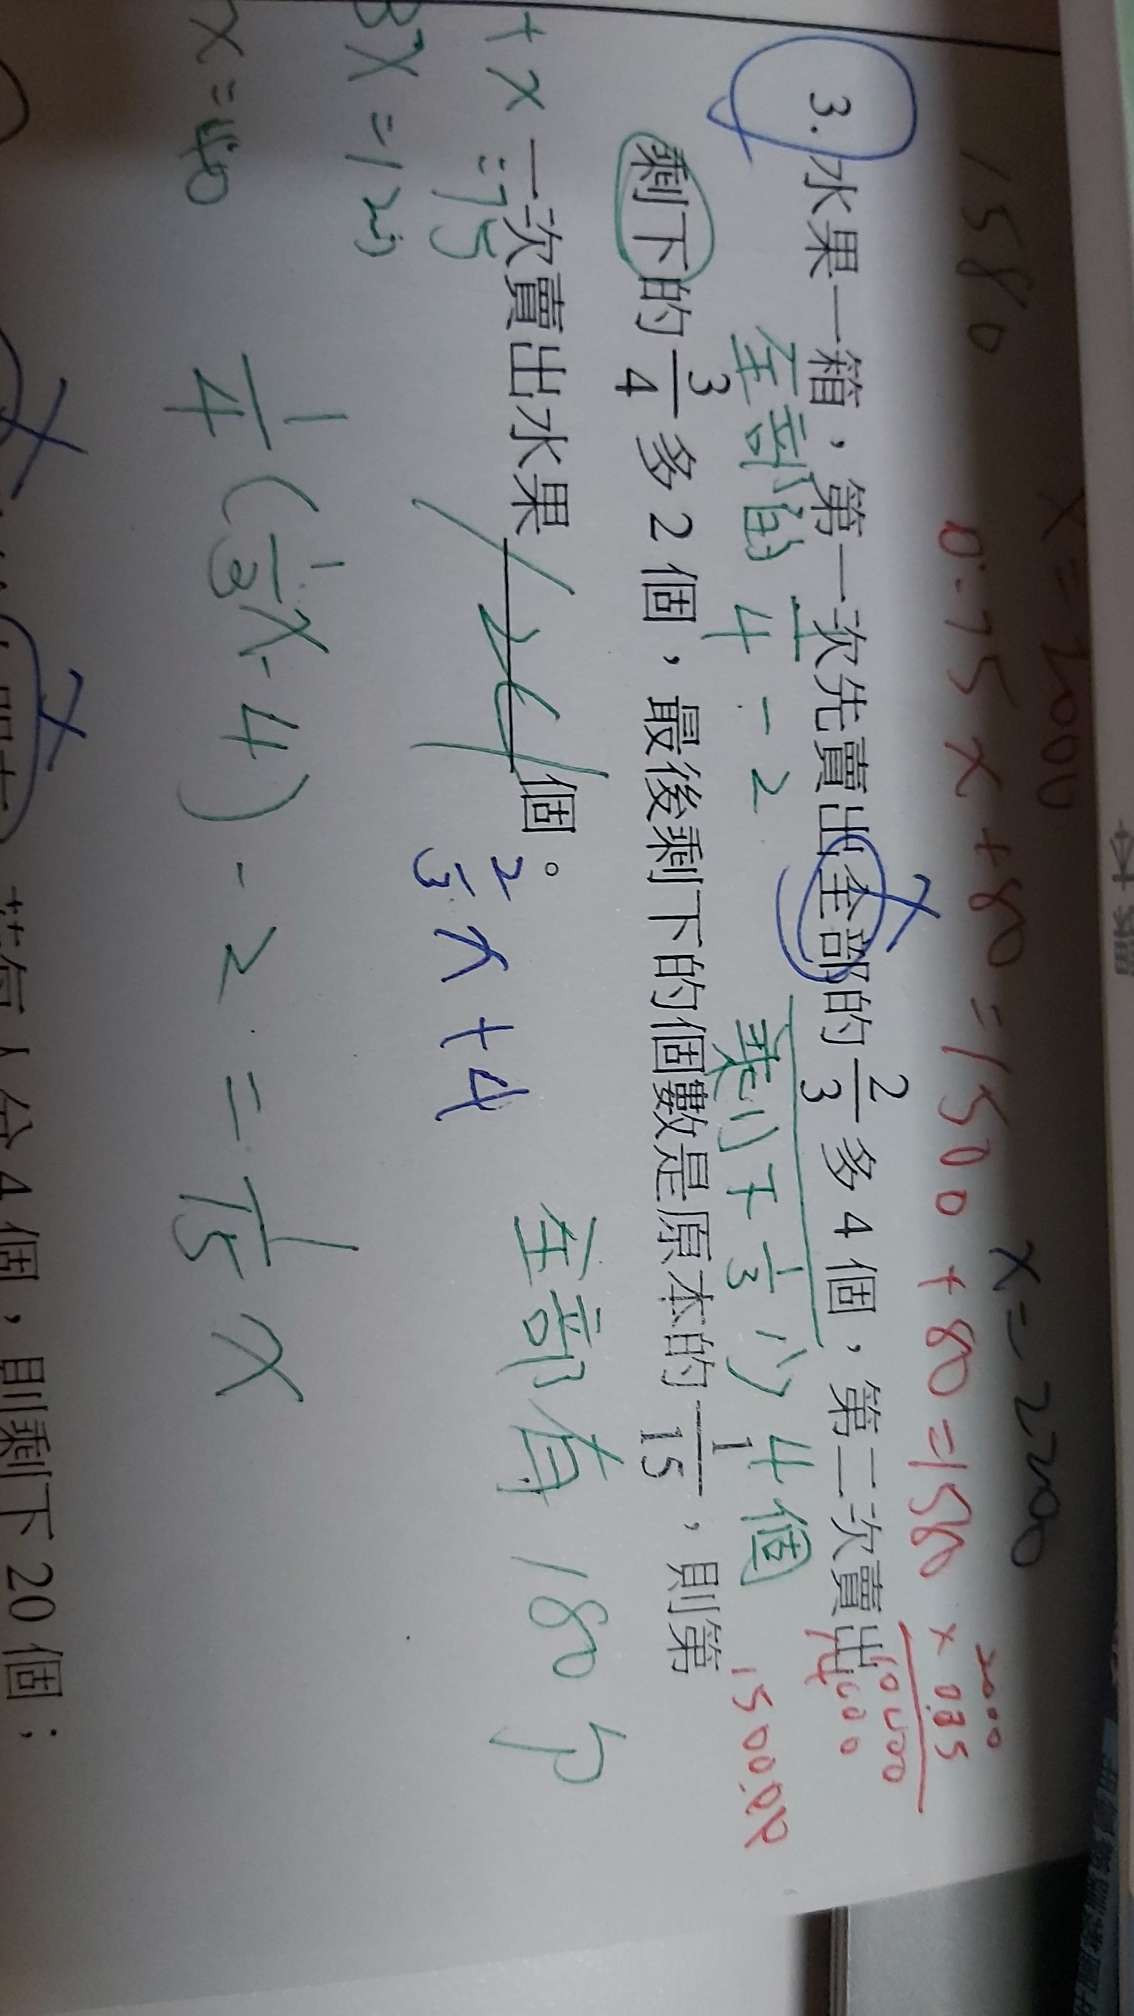 x=2000
x=2200
1580
0.75x+80=1500+80=1580
3.水果一箱,第一次先賣出全部的 2/3 多 4 個,第二次賣出
全部的 1/4 -2 剩下 1/3 少 4個
剩下的 3/4 多 2 個,最後剩下的個數是原本的 1/15,則第
一次賣出水果 124 個。
+x=75
2/3 x+4
全部有 180
3x=120
x=40
1/4(1/3 x-4)-2=1/15 x
若每人分 4 個,則剩下 20 個;